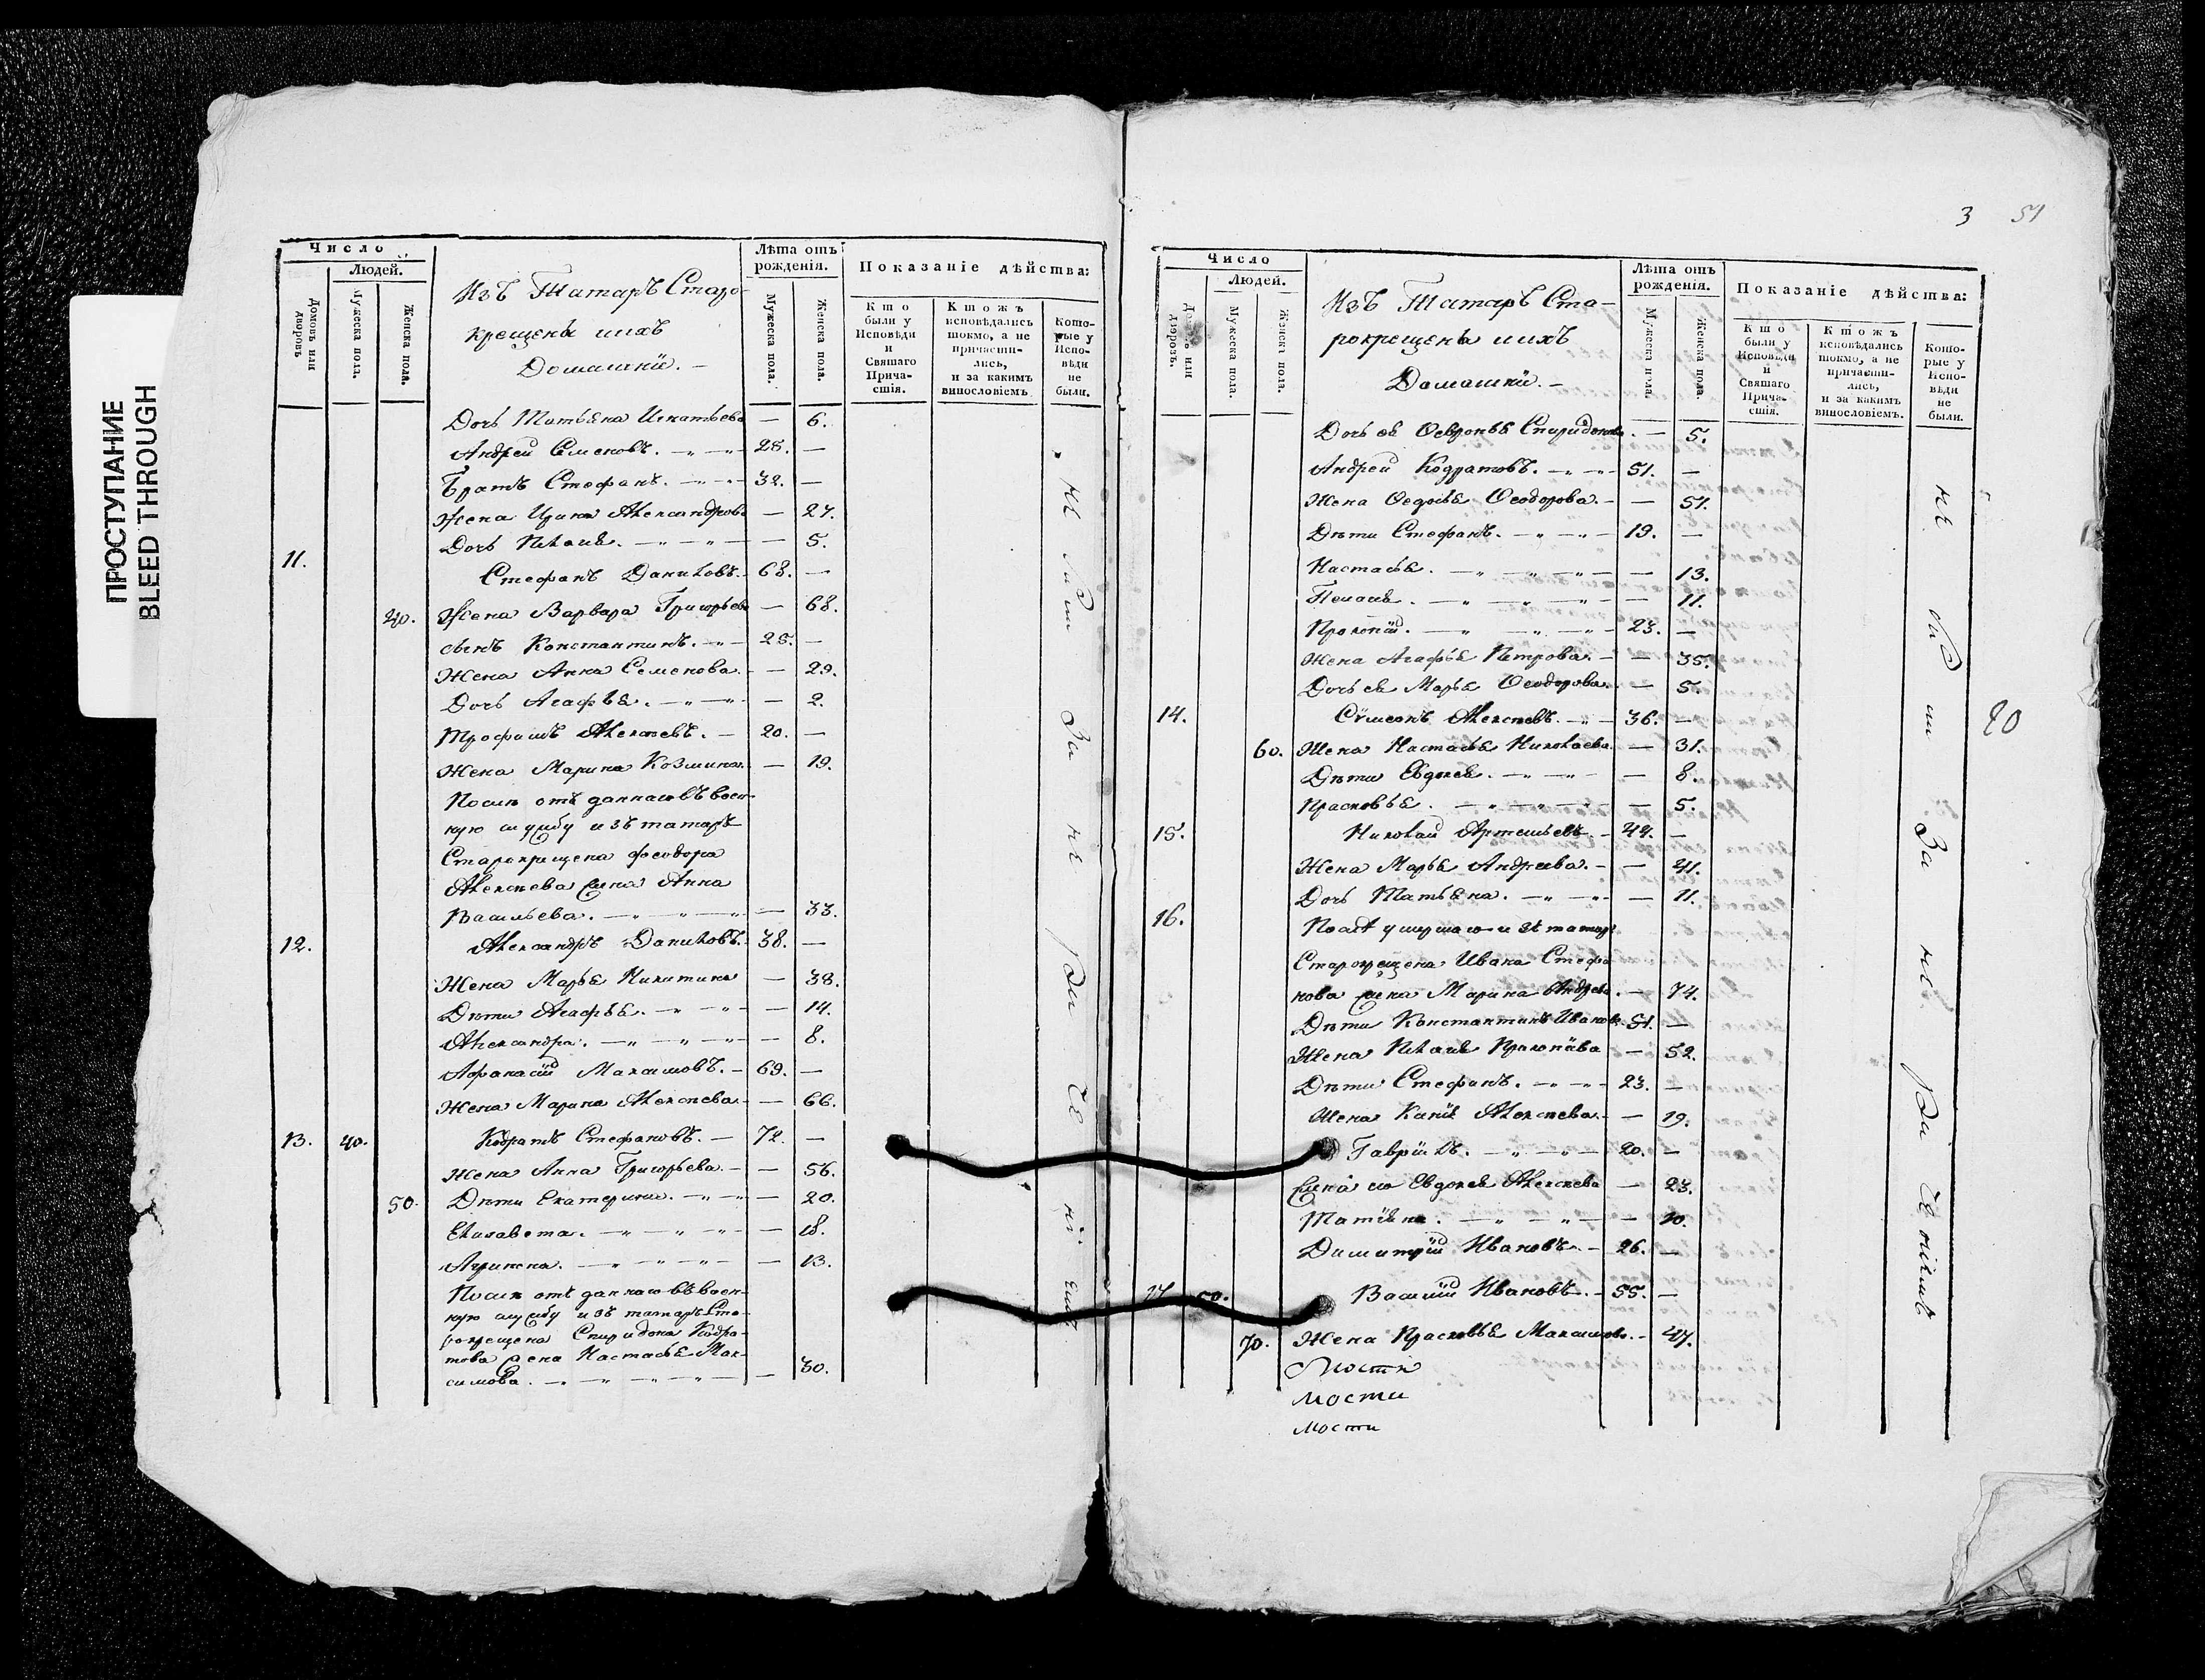 ПРОСТУПАНИЕ
BLEED THROUGH
Число
Людей.
Домовъ или дворовъ
Мужеска пола.
Женска пола.
Изъ Татаръ Старо-
крещены и ихъ
Домашнїи. –
Лѣта отъ рождения.
Мужеска пола.
Женска пола.
Показаніе дѣйства:
Кто были у Исповѣди и Святаго Причастія.
Ктожъ исповѣдались токмо, а не причастились, и за какимъ винословіемъ
Которые у Исповѣди не были.
Дочь Татьяна Игнатьева — 6.
Андрей Семеновъ. 28. —
Братъ Стефанъ. 32. —
Жена Ирина Александрова — 27.
Дочь Пелагія. — 5.
11. Стефанъ Даниловъ. 68. —
40. Жена Варвара Григорьева — 68.
сынъ Константинъ. 28. —
Жена Анна Семенова. — 29.
Дочь Агафья. — 2.
Трофимъ Алексѣевъ. 20. —
Жена Марина Козмина. — 19.
Послѣ отданнаго въ воен-
ную службу изъ татаръ
Старокрещена Феодора
Алексѣева жена Анна
Васильева. — 33.
12. Александръ Даниловъ. 38. —
Жена Марья Никитина — 38.
Дѣти Агафья. — 14.
Александра. — 8.
Афанасій Максимовъ. 69. —
Жена Марина Алексѣева. — 66.
13. 40. Кодратъ Стефановъ. 72. —
Жена Анна Григорьева. — 56.
50. Дѣти Екатерина. — 20.
Елизавета. — 18.
Агрипена. — 13.
Послѣ отданнаго въ воен-
ную службу изъ татаръ Ста-
рокрещена Спиридона Кодра-
това жена Настасья Мак-
симова. — 30.
3 51
Число
Людей.
Домовъ или дворовъ.
Мужеска пола.
Женска пола.
Изъ Татаръ Ста-
рокрещены и ихъ
Домашнїи. –
Лѣта отъ рождения.
Мужеска пола
Женска пола.
Показаніе дѣйства:
Кто были у Исповѣди и Святаго Причастія.
Ктожъ исповѣдались токмо, а не причастились, и за какимъ винословіемъ.
Которые у Исповѣди не были.
Дочь ея Февронья Спиридонова. — 5.
Андрей Кодратовъ. 51. —
Жена Федосья Феодорова. — 51.
Дѣти Стефанъ. 19. —
Настасья. — 13.
Пелагія. — 11.
Прокопій. 23. —
Жена Агафья Петрова. — 35.
Дочь ея Марья Феодорова. — 5.
14. Сѵмеонъ Алексѣевъ. 36. —
60. Жена Настасья Николаева. — 31.
Дѣти Евдокея. — 8.
Прасковья. — 5.
15. Николай Артемьевъ. 42. —
Жена Марья Андреева. — 41.
Дочь Татьяна. — 11.
16. Послѣ умершаго изъ татаръ
Старокрещена Ивана Стефа
нова жена Марина Андреева. — 74.
Дѣти Константинъ Ивановъ. 51. —
Жена Пелагія Прокопіева — 52.
Дѣти Стефанъ. 23. —
Жена Алексѣева. — 19.
Гаврїилъ. 20. —
Жена его Евдокея Алексѣева — 23.
Татїяна. — 10.
Димитрїй Ивановъ. 26. —
17 50. Василїй Ивановъ. 55. —
70. Жена Прасковья Максимова. — 47.
20